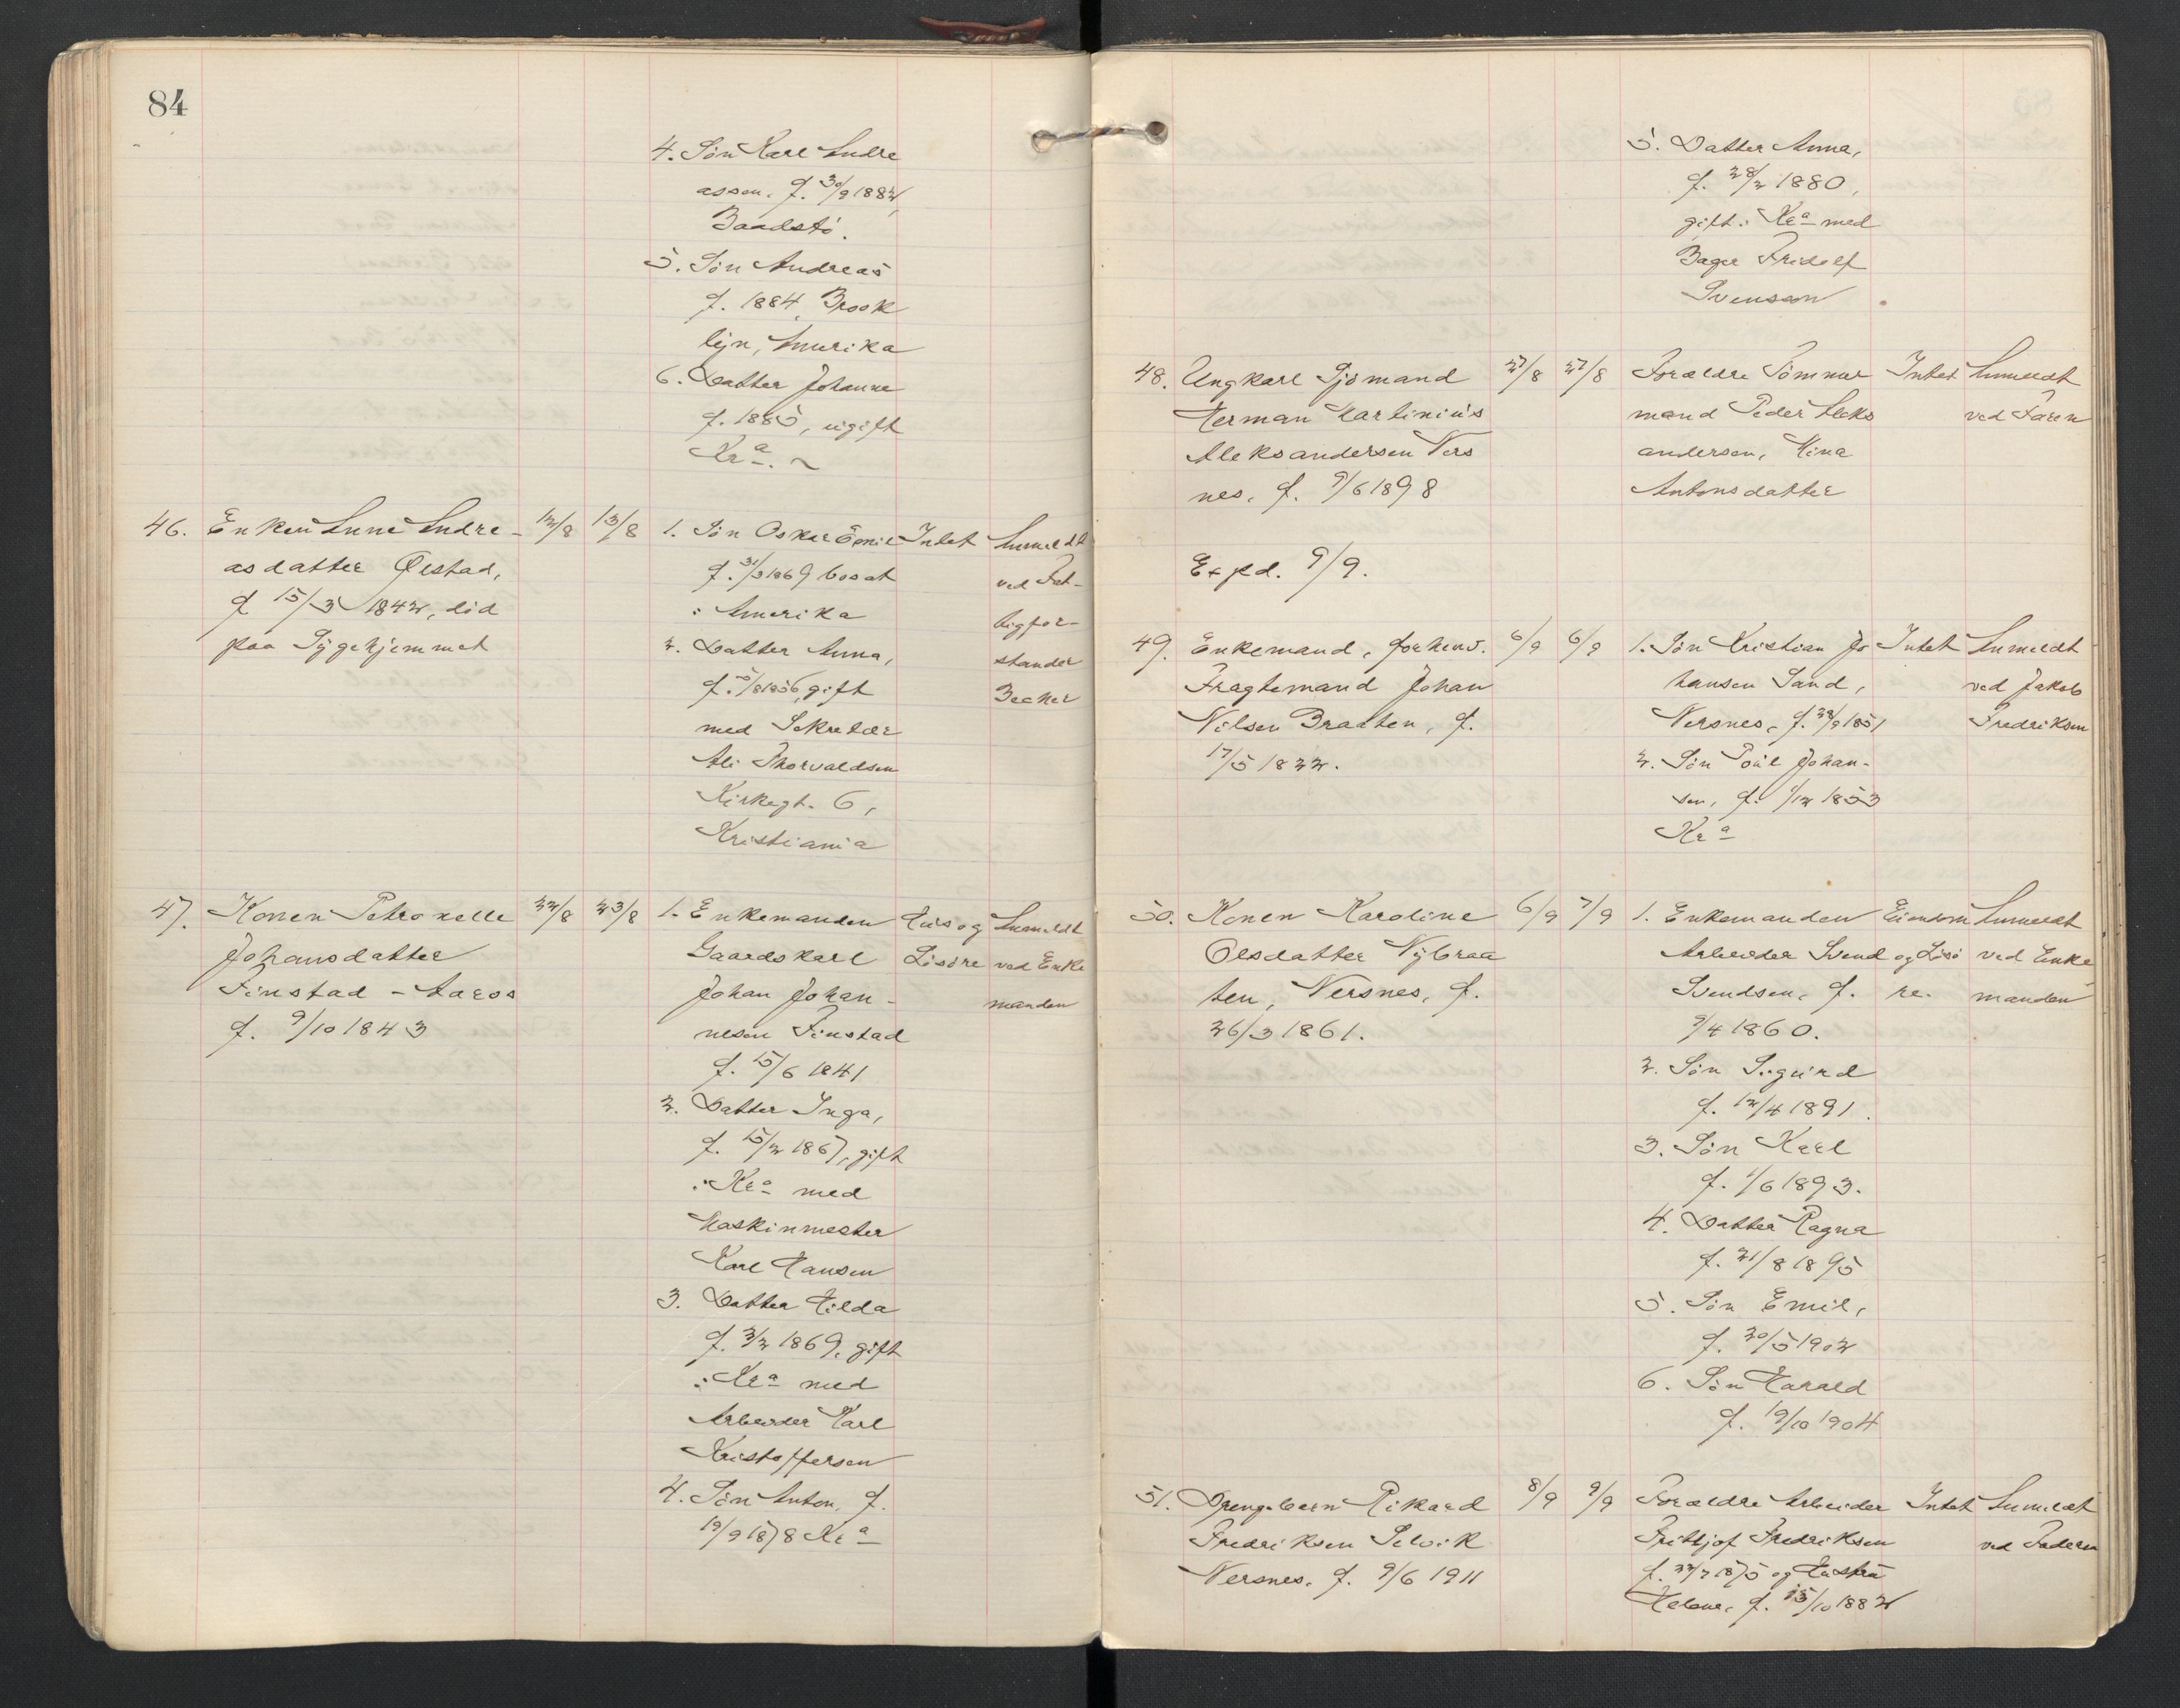 84
4. Søn Karl Andre
assen, f. 30/9 1882,
Baadstø.
5. Søn Andreas
f. 1884, Brook
lyn, Amerika
6. Datter Johanne
f. 1885, ugift
Kra.
46. Enken Anne Andre- 12/8 13/8 1. Søn Oskar Emil Intet Anmeldt
asdatter Ørstad, f. 31/3 1869 bosat ved Fat-
f 15/3 1842, død i Amerika tigfor-
paa Sygehjemmet 2. Datter Anna, stander
f. 5/8 1856, gift Becker
med Sekretær
Ali Thorvaldsen
Kirkegt. 6,
Kristiania
47. Konen Petronelle 22/8 23/8 1. Enkemanden Hus og Anmeldt
Johansdatter Gaardskarl Løsøre ved Enke
Finstad - Aaros Johan Johan- manden
f. 9/10 1843 nesen Finstad
f. 15/6 1841
2. Datter Inga,
f. 15/2 1867, gift
i Kra med
Maskinmester
Karl Hansen
3. Datter Hilda
f. 3/2 1869, gift
i Kra med
Arbeider Karl
Kristoffersen
4. Søn Anton, f.
19/9 1878 Kra
5. Datter Anna,
f. 28/2 1880,
gift i Kra med
Bager Fridolf
Svensson
48. Ungkarl Sjømand 27/8 27/8 Forældre Tømmer Intet Anmeldt
Herman Martinius mand Peder Aleks ved Faren
Aleksandersen Ners andersen, Mina
nes, f. 9/6 1898 Antonsdatter
Expd. 9/9.
49. Enkemand, forhenv. 6/9 6/9 1. Søn Kristian Jo Intet Anmeldt
Fragtemand Johan hansen Sand, ved Jakob
Nilsen Braaten, f. Nersnes, f. 28/9 1851 Fredriksen
17/5 1822. 2. Søn Poul Johan-
sen, f. 1/12 1853
Kra
50. Konen Karoline 6/9 7/9 1. Enkemanden Eiendom Anmeldt
Olsdatter Nybraa Arbeider Svend og Løsø ved Enke
ten, Nersnes, f. Svendsen, f. re. manden
26/3 1861. 9/4 1860.
2. Søn Sigurd
f. 12/4 1891.
3. Søn Karl
f. 1/6 1893.
4. Datter Ragna
f. 21/8 1895
5. Søn Emil,
f. 20/5 1902
6. Søn Harald
f. 19/10 1904
51. Drengebarn Rikard 8/9 9/9 Forældre Arbeider Intet Anmeldt
Fredriksen Selvik Fritjof Fredriksen ved Faderen
Nersnes, f. 9/6 1911 f. 22/7 1875 og Hustru
Helene, f. 15/10 1882